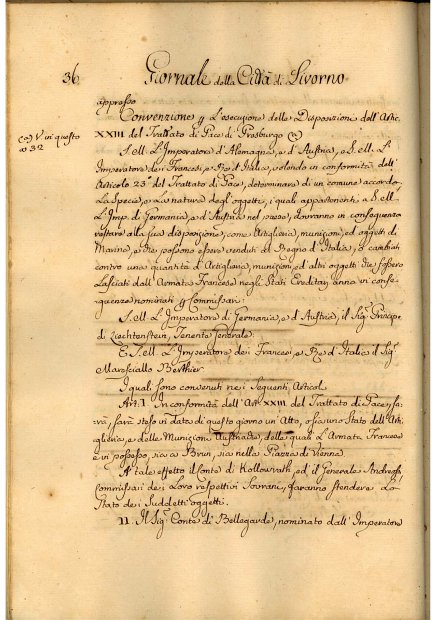 36 Giornale della Città di Livorno
appresso
Convenzione p l'esecuzione delle Disposizioni dell'Artic.
XXIII del Trattato di Pace di Presburgo (a)
(a) V. in questo
a 32
S. M. L'Imperatore d'Alemagna, e d'Austria, e S. M. L'
Imperatore dei Francesi, e Re d'Italia, volendo in conformità dell'
Articolo 23° del Trattato di Pace, determinare di un comune accordo
La specie, e la natura degli oggetti, i quali appartenenti a S. M.
L'Imp. di Germania, e d'Austria nel paese, dovranno in conseguenza
restare alla sua disposizione, come Artiglieria, munizioni, ed oggetti di
Marina, e che possono essere venduti al Regno d'Italia, o cambiati
contro una quantità d'Artiglieria, munizioni, ed altri oggetti che fossero
Lasciati dall'Armata Francese negli Stati Ereditarj anno in conse-
guenza nominati p Commissari:
S. M. L'Imperatore di Germania, e d'Austria, il Sig. Principe
di Liechtenstein, Tenente Generale.
E S. M. L'Imperatore dei Francesi, e Re d'Italia il Sig.
Maresciallo Berthier
I quali sono convenuti nei seguenti Articoli
Art. I. In conformità dell'Art. XXIII del Trattato di Pace,
sarà steso in data di questo giorno un'Atto, ossia uno Stato dell'Arti-
glieria, e delle Munizioni Austriache, delle quali L'Armata Francese
è in possesso, sia a Brun, sia nella Piazza di Vienna.
A tale effetto il Conte di Kollowrath, ed il Generale Andreossi
Commissari dei Loro respettivi Sovrani, faranno stendere Lo
Stato dei Suddetti oggetti.
II. Il Sig. Conte di Bellegarde, nominato dall'Imperatore